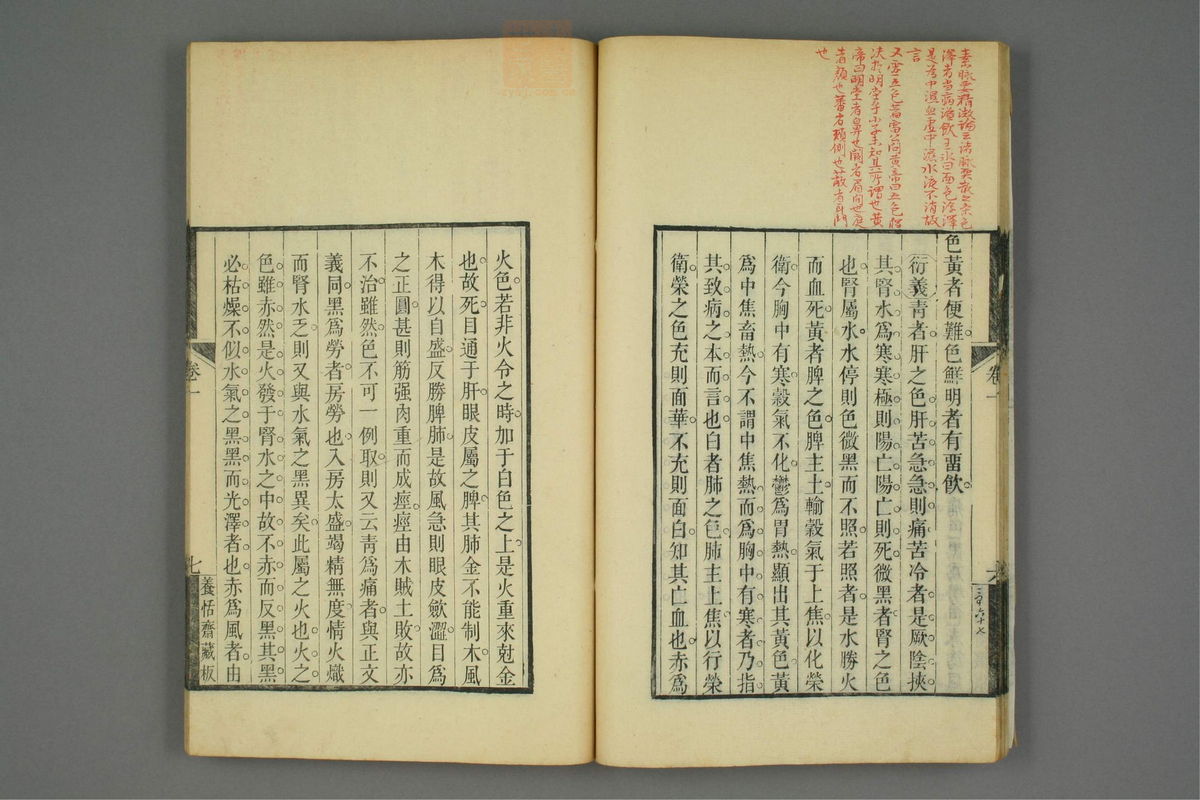 素脉要精微論云諸脉
又云五色
決於明堂乎小子未知其所謂也黃
帝曰明堂者鼻也闕者眉間也庭
者顏也蕃者頰側也蔽者耳門
也
色黃者便難色鮮明者有畱飲
衍義青者肝之色肝苦急急則痛苦冷者是厥陰挾
其腎水爲寒寒極則陽亡陽亡則死微黑者腎之色
也腎屬水水停則色微黑而不照若照者是水勝火
而血死黃者脾之色脾主土輸穀氣于上焦以化榮
衛今胸中有寒穀氣不化鬱爲胃熱顯出其黃色黃
爲中焦畜熱今不謂中焦熱而爲胸中有寒者乃指
其致病之本而言也白者肺之色肺主上焦以行榮
衛榮之色充則面華不充則面白知其亡血也赤爲
卷一
六
火色若非火令之時加于白色之上是火重來尅金
也故死目通于肝眼皮屬之脾其肺金不能制木風
木得以自盛反勝脾肺是故風急則眼皮歛澀目爲
之正圓甚則筋强肉重而成痙痙由木賊土敗故亦
不治雖然色不可一例取則又云青爲痛者與正文
義同黑爲勞者房勞也入房太盛竭精無度情火熾
而腎水乏則又與水氣之黑異矣此屬之火也火之
色雖赤然是火發于腎水之中故不赤而反黑其黑
必枯燥不似水氣之黑黑而光澤者也赤爲風者由
卷一
七
養恬齋藏板